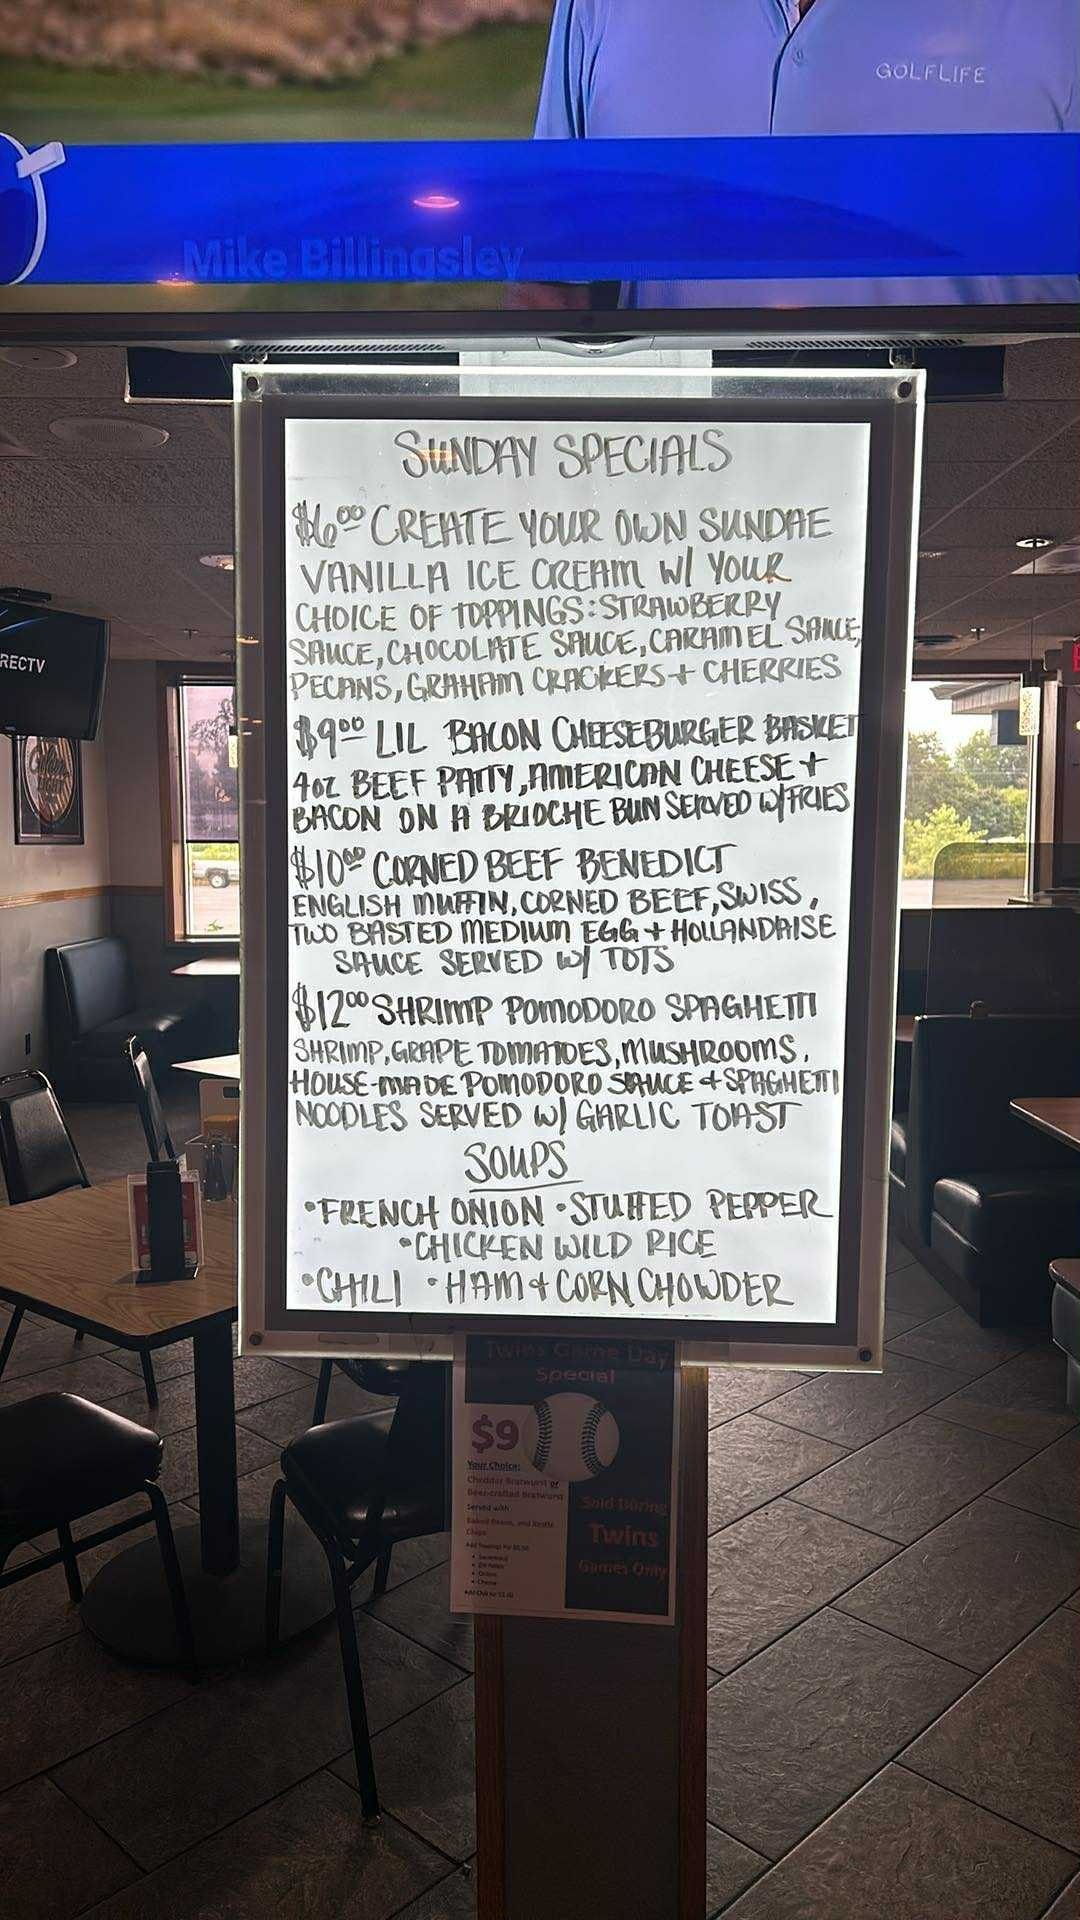 GOLFLIFE
Mike Billingsley
RECTV
SUNDAY SPECIALS
$6.00 CREATE YOUR OWN SUNDAE
VANILLA ICE CREAM W/ YOUR
CHOICE OF TOPPINGS: STRAWBERRY
SAUCE, CHOCOLATE SAUCE, CARAMEL SAUCE,
PECANS, GRAHAM CRACKERS + CHERRIES
$9.00 LIL BACON CHEESEBURGER BASKET
4oz BEEF PATTY, AMERICAN CHEESE +
BACON ON A BRIOCHE BUN SERVED W/FRIES
$10.00 CORNED BEEF BENEDICT
ENGLISH MUFFIN, CORNED BEEF, SWISS,
TWO BASTED MEDIUM EGG + HOLLANDAISE
SAUCE SERVED W/ TOTS
$12.00 SHRIMP POMODORO SPAGHETTI
SHRIMP, GRAPE TOMATOES, MUSHROOMS,
HOUSE-MADE POMODORO SAUCE + SPAGHETTI
NOODLES SERVED W/ GARLIC TOAST
SOUPS
•FRENCH ONION •STUFFED PEPPER
•CHICKEN WILD RICE
•CHILI •HAM + CORN CHOWDER
Twins Game Day
Special
$9
Your Choice:
Cheddar Bratwurst or
Beer-crafted Bratwurst
Served with
Baked Beans, and Kettle
Chips
• Sauerkraut
• Onions
• Cheese
Sold During
Twins
Games Only